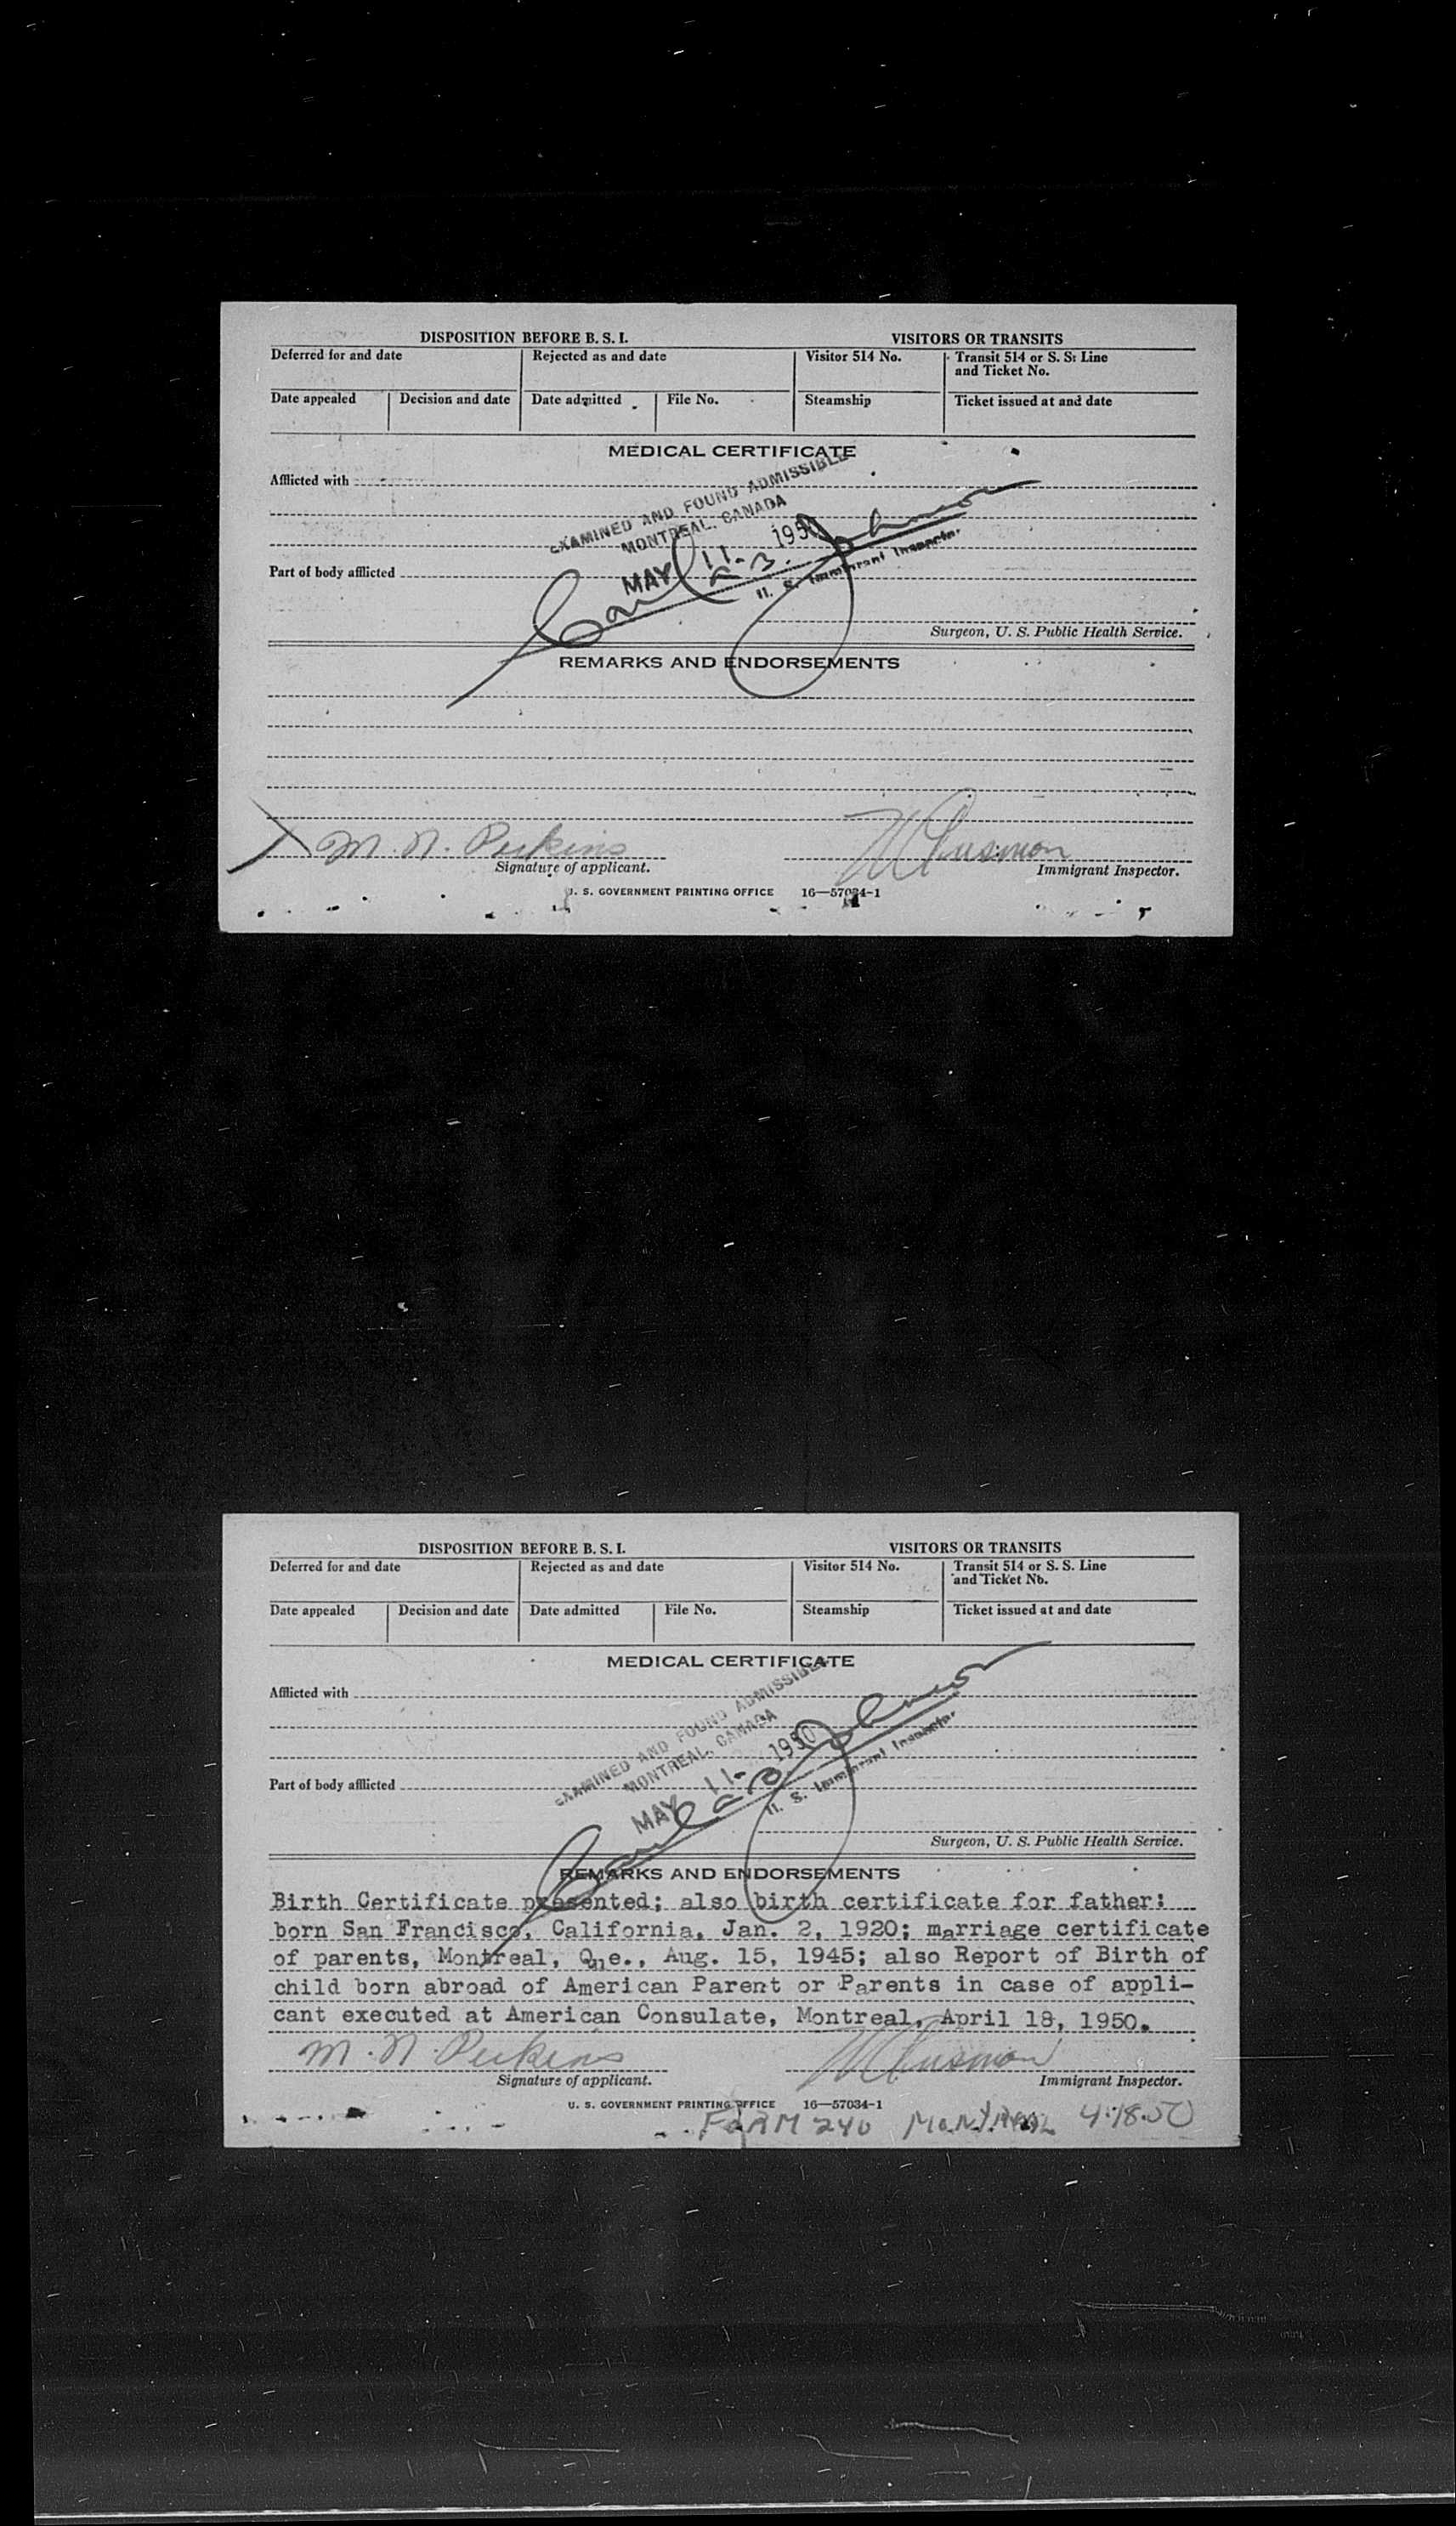 DISPOSITION BEFORE B. S. I. VISITORS OR TRANSITS
Deferred for and date Rejected as and date Visitor 514 No. Transit 514 or S. S. Line
and Ticket No.
Date appealed Decision and date Date admitted File No. Steamship Ticket issued at and date
MEDICAL CERTIFICATE
Afflicted with
EXAMINED AND FOUND ADMISSIBLE
MONTREAL, CANADA
MAY 11 1950
Part of body afflicted
U. S. Immigrant Inspector
Surgeon, U. S. Public Health Service.
REMARKS AND ENDORSEMENTS
M. N. Perkins
Signature of applicant. Immigrant Inspector.
U. S. GOVERNMENT PRINTING OFFICE 16—57034-1
DISPOSITION BEFORE B. S. I. VISITORS OR TRANSITS
Deferred for and date Rejected as and date Visitor 514 No. Transit 514 or S. S. Line
and Ticket No.
Date appealed Decision and date Date admitted File No. Steamship Ticket issued at and date
MEDICAL CERTIFICATE
Afflicted with
EXAMINED AND FOUND ADMISSIBLE
MONTREAL, CANADA
MAY 11 1950
Part of body afflicted
U. S. Immigrant Inspector
Surgeon, U. S. Public Health Service.
REMARKS AND ENDORSEMENTS
Birth Certificate presented; also birth certificate for father:
born San Francisco, California, Jan. 2, 1920; marriage certificate
of parents, Montreal, Que., Aug. 15, 1945; also Report of Birth of
child born abroad of American Parent or Parents in case of appli-
cant executed at American Consulate, Montreal, April 18, 1950.
M. N. Perkins
Signature of applicant. Immigrant Inspector.
U. S. GOVERNMENT PRINTING OFFICE 16—57034-1
FORM 240 MONTREAL 4.18.50